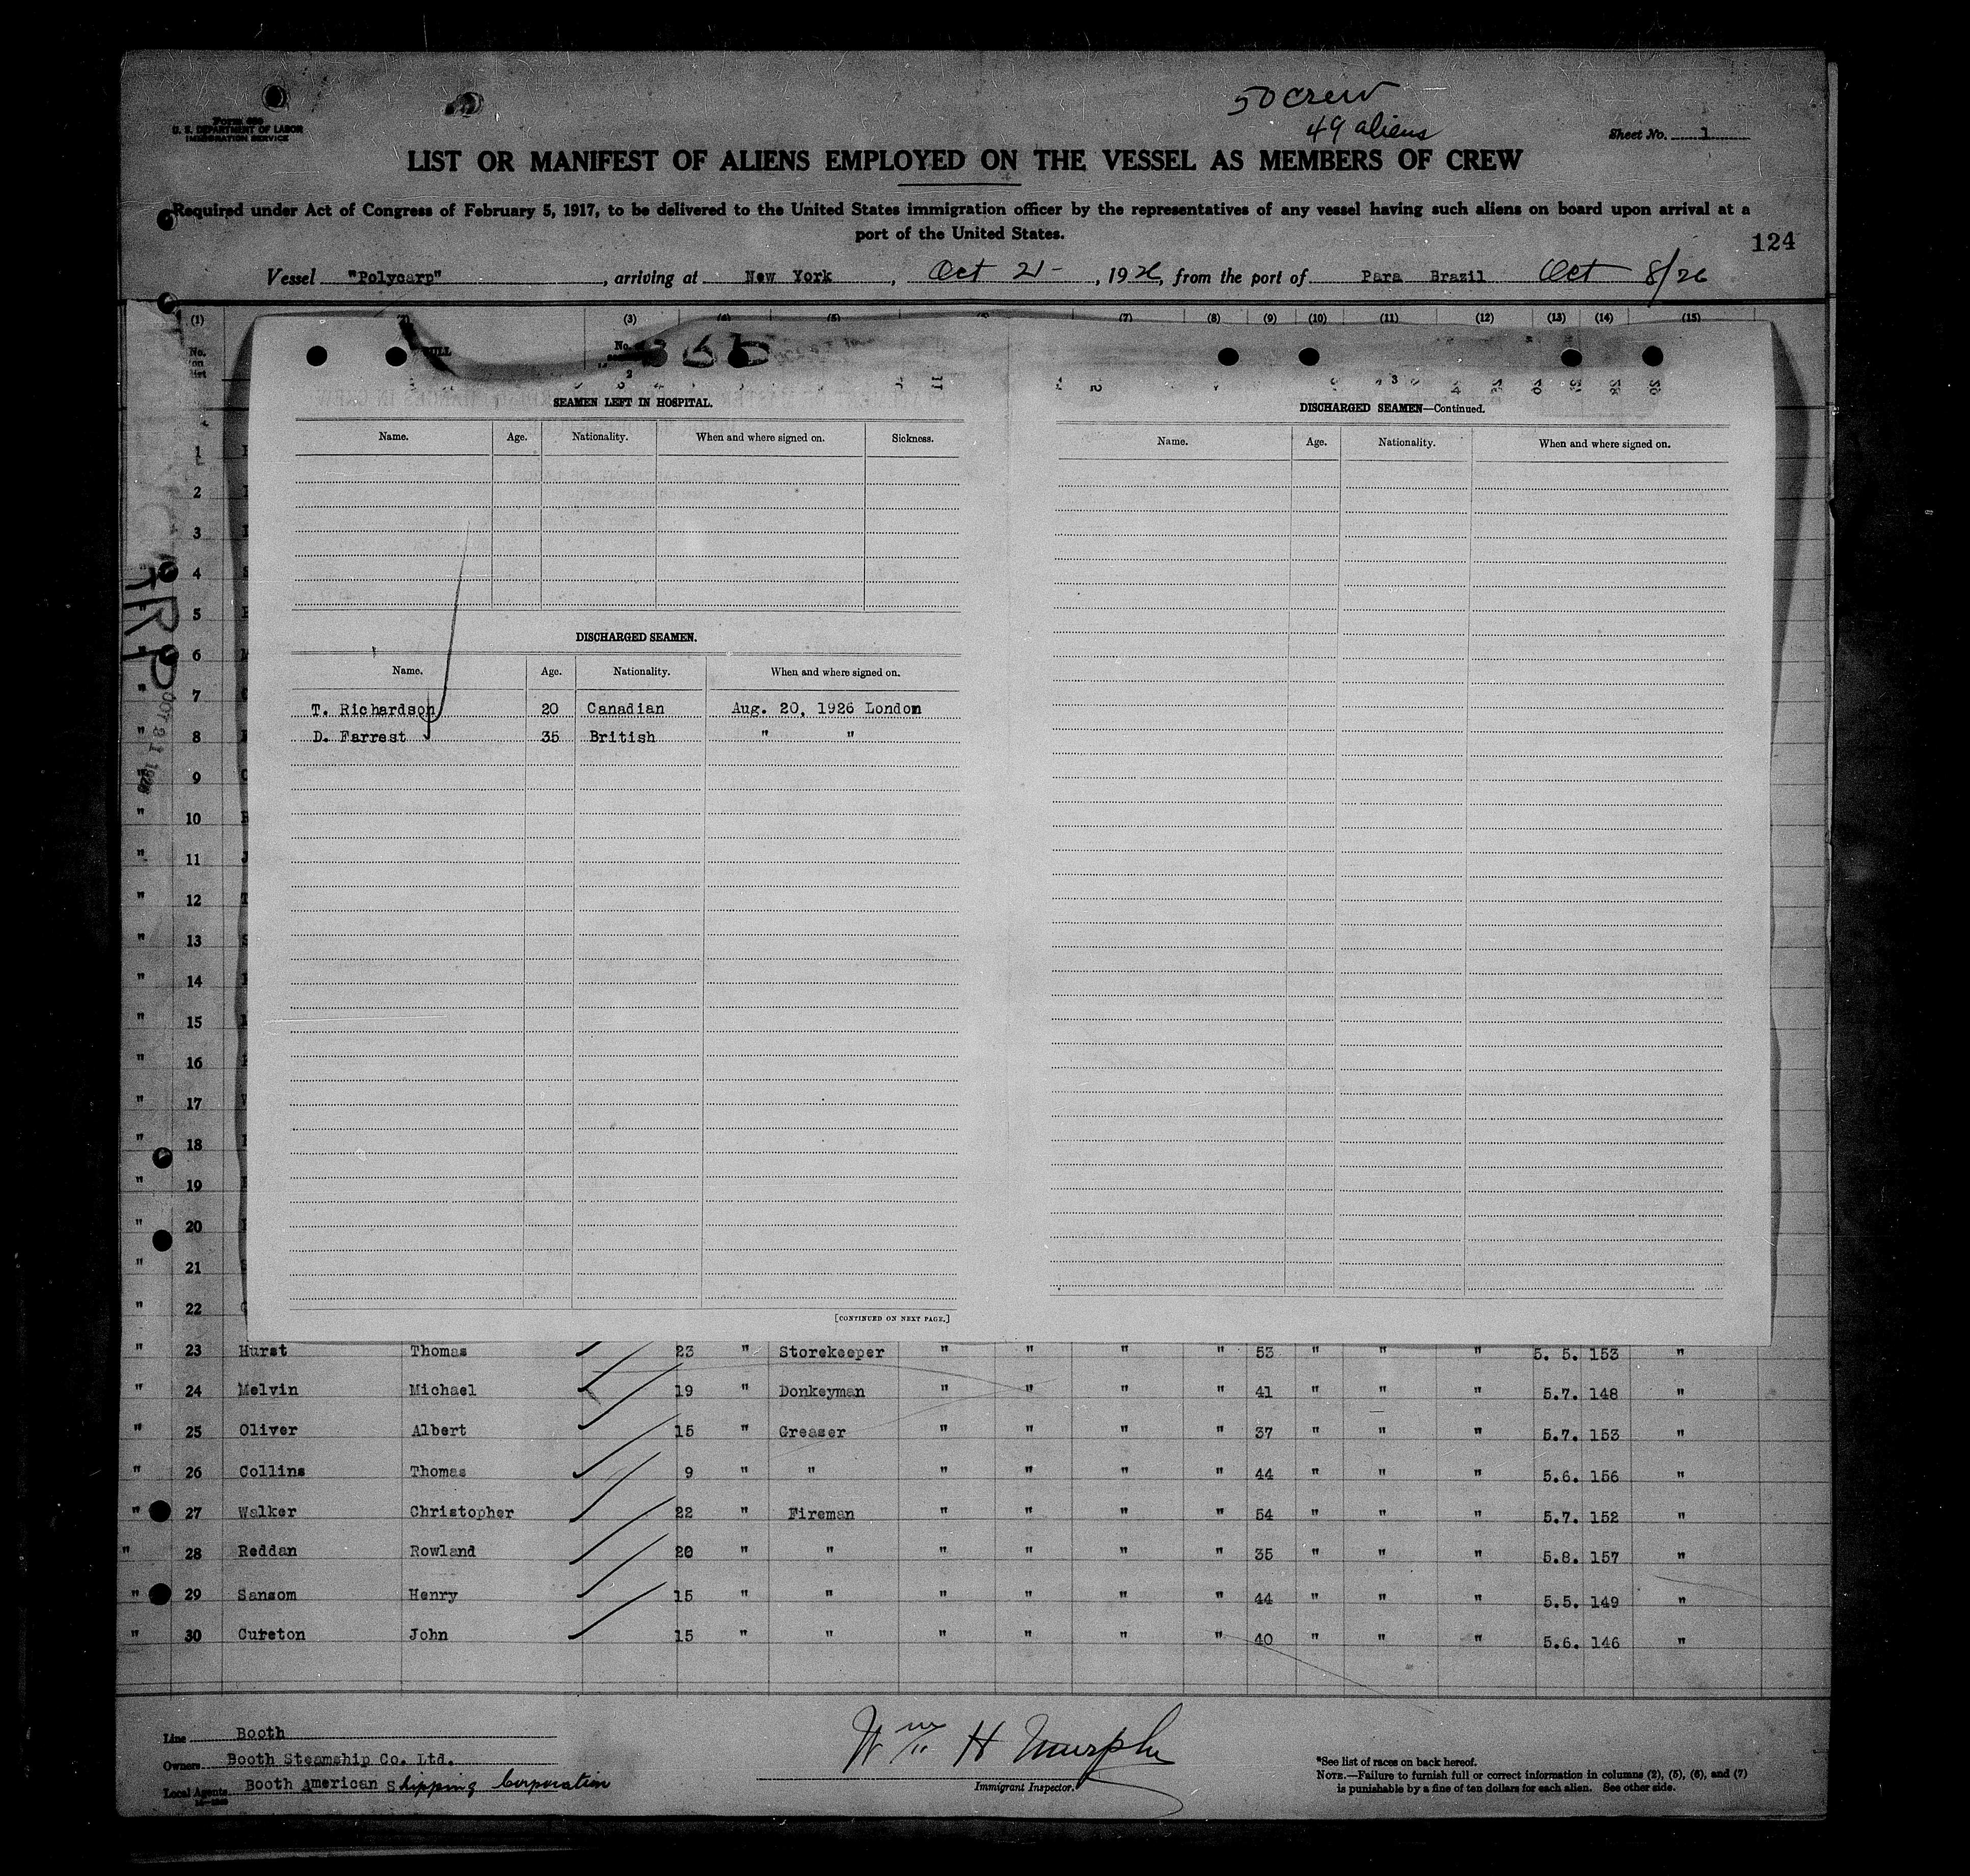 50 crew
49 aliens
U. S. DEPARTMENT OF LABOR
IMMIGRATION SERVICE
Sheet No. 1
LIST OR MANIFEST OF ALIENS EMPLOYED ON THE VESSEL AS MEMBERS OF CREW
Required under Act of Congress of February 5, 1917, to be delivered to the United States immigration officer by the representatives of any vessel having such aliens on board upon arrival at a
port of the United States.
124
Vessel "Polycarp", arriving at New York, Oct 21-, 1926, from the port of Para Brazil Oct 8/26
(1) (3) (5) (7) (8) (9) (10) (11) (12) (13) (14) (15)
No.
on
list
SEAMEN LEFT IN HOSPITAL.
Name. Age. Nationality. When and where signed on. Sickness.
DISCHARGED SEAMEN.
Name. Age. Nationality. When and where signed on.
T. Richardson 20 Canadian Aug. 20, 1926 London
D. Farrest 35 British " "
[CONTINUED ON NEXT PAGE.]
3
DISCHARGED SEAMEN—Continued.
Name. Age. Nationality. When and where signed on.
1
2
3
4
5
6
7
" 8
" 9
" 10
" 11
" 12
" 13
" 14
" 15
" 16
" 17
" 18
" 19
" 20
" 21
" 22
" 23 Hurst Thomas 23 " Storekeeper " " " " 53 " " " 5. 5. 153 "
" 24 Melvin Michael 19 " Donkeyman " " " " 41 " " " 5.7. 148 "
" 25 Oliver Albert 15 " Greaser " " " " 37 " " " 5.7. 153 "
" 26 Collins Thomas 9 " " " " " " 44 " " " 5.6. 156 "
" 27 Walker Christopher 22 " Fireman " " " " 54 " " " 5.7. 152 "
" 28 Reddan Rowland 20 " " " " " " 35 " " " 5.8. 157 "
" 29 Sansom Henry 15 " " " " " " 44 " " " 5.5. 149 "
" 30 Cureton John 15 " " " " " " 40 " " " 5.6. 146 "
Line Booth
Owners Booth Steamship Co. Ltd.
Local Agents Booth American Shipping Corporation
Wm H Murphy
Immigrant Inspector.
*See list of races on back hereof.
NOTE.—Failure to furnish full or correct information in columns (2), (5), (6), and (7)
is punishable by a fine of ten dollars for each alien. See other side.